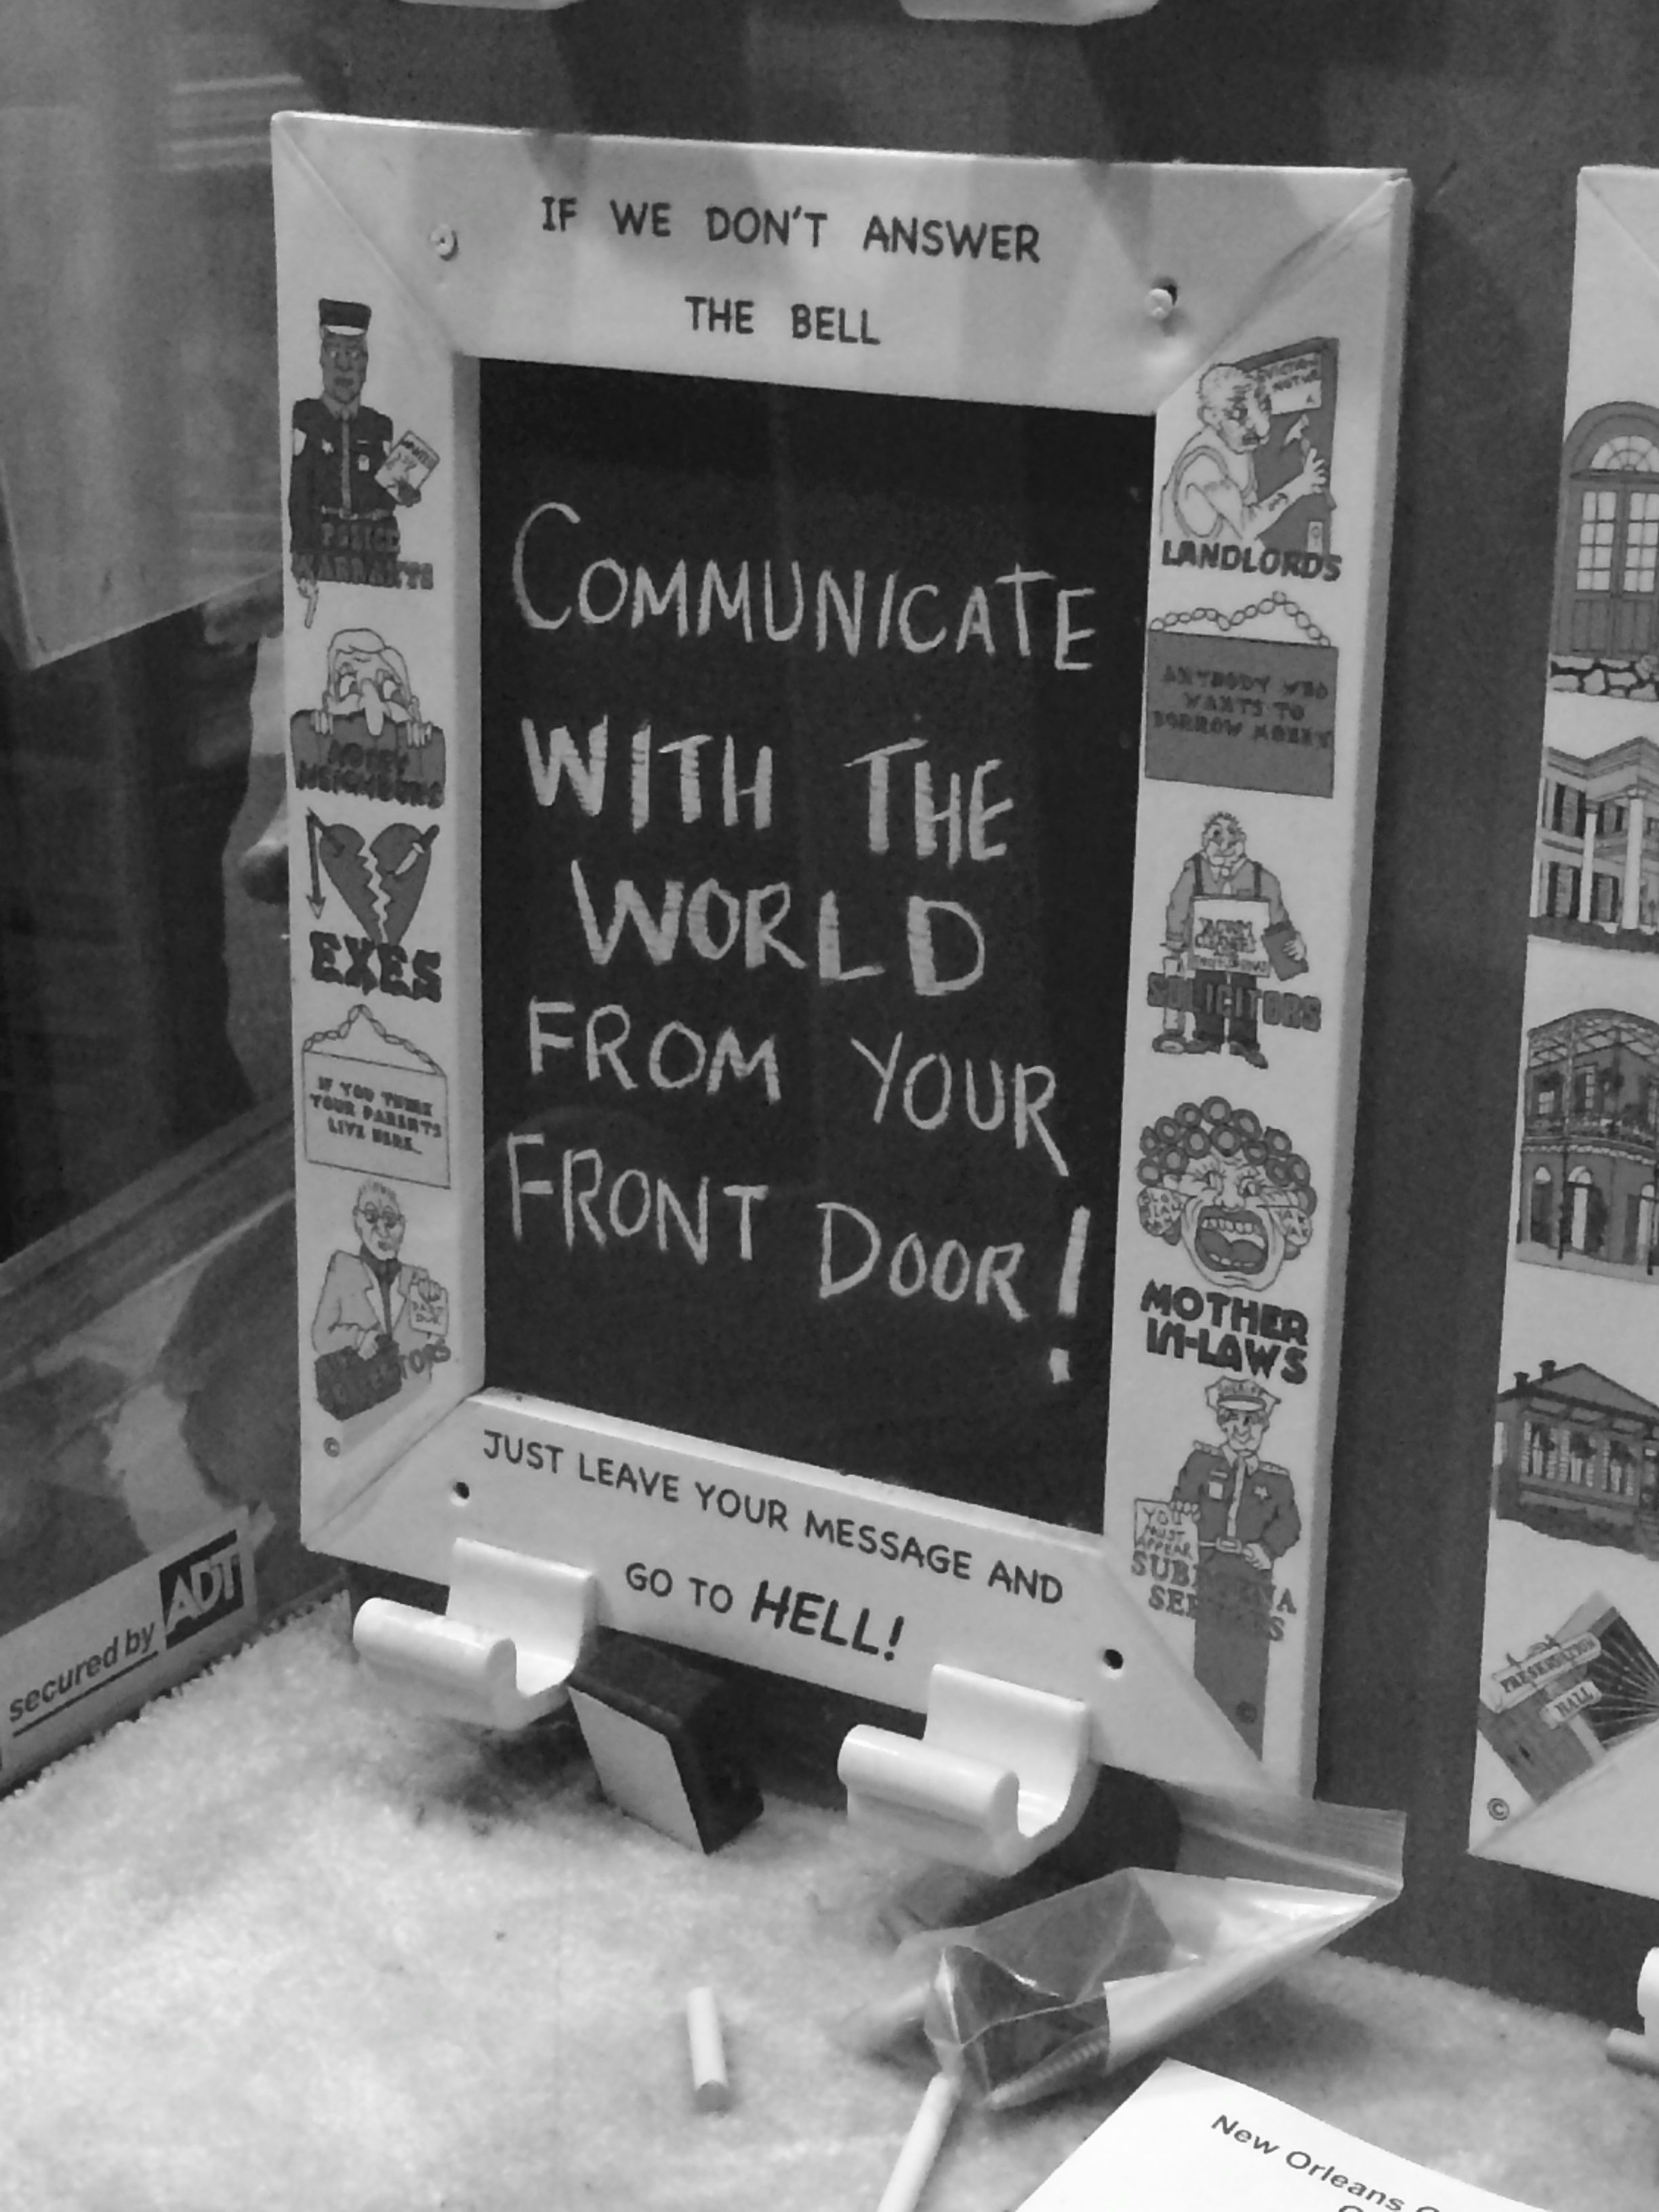 IF WE DON'T ANSWER
THE BELL
POLICE
WARRANTS
NOSEY
NEIGHBORS
EXES
IF YOU THINK
YOUR PARENTS
LIVE HERE...
PAST
DUE
COMMUNICATE
WITH THE
WORLD
FROM YOUR
FRONT DOOR!
EVICTION
NOTICE
LANDLORDS
ANYBODY WHO
WANTS TO
BORROW MONEY
SOLICITORS
MOTHER
IN-LAWS
SHERIFF
YOU
MUST
APPEAR
SUBPOENA
SERVERS
©
©
JUST LEAVE YOUR MESSAGE AND
GO TO HELL!
secured by ADT
PRESERVATION
HALL
©
New Orleans